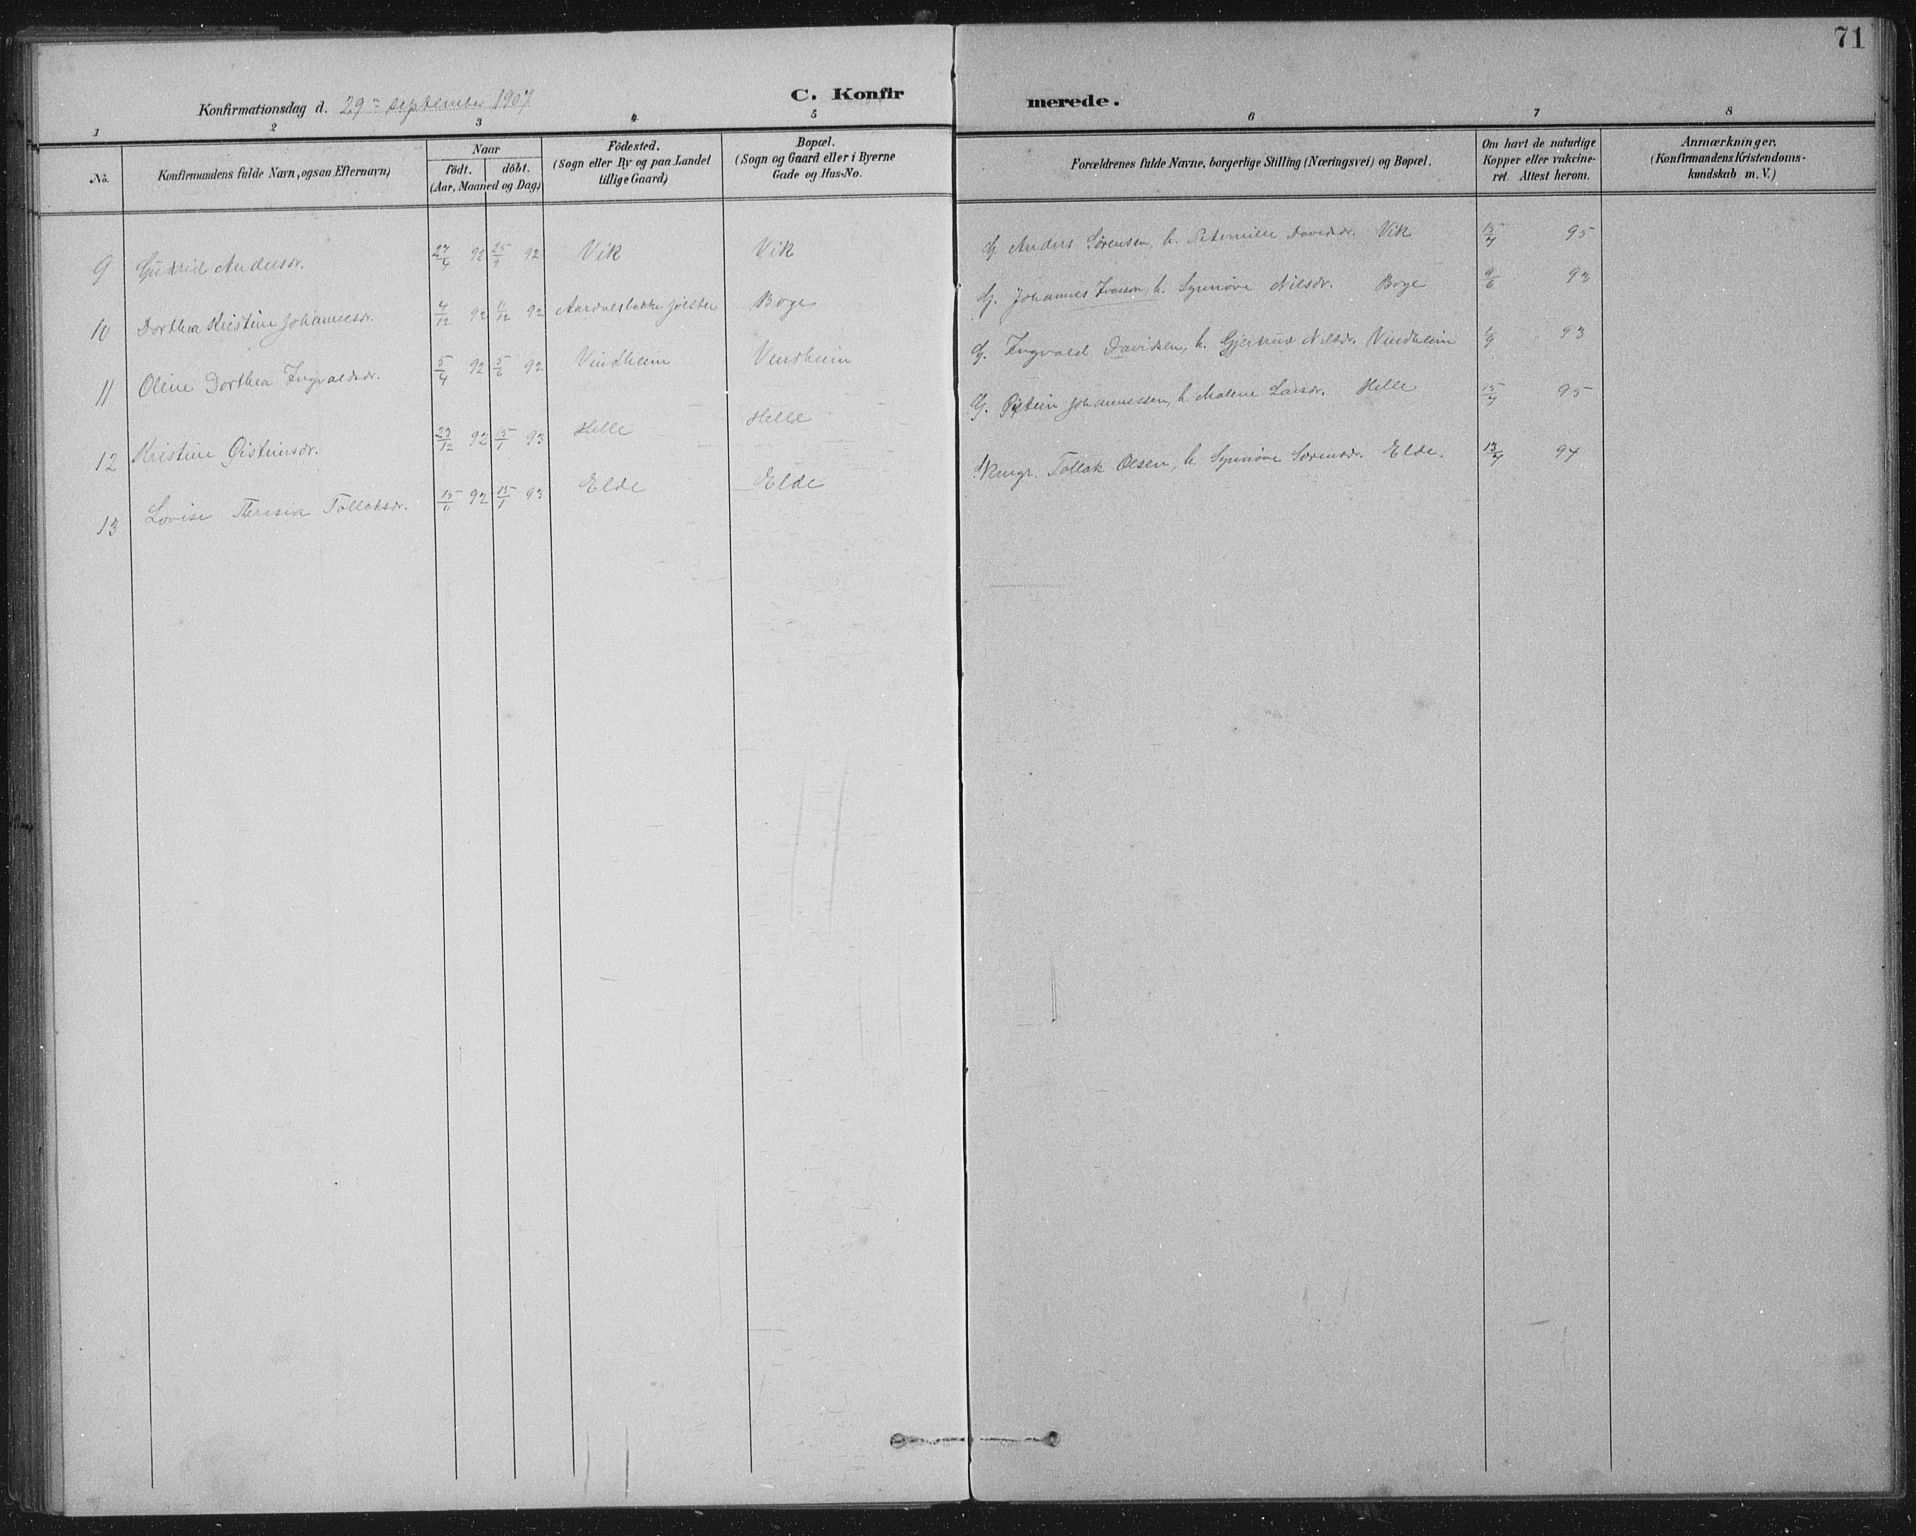 71
Konfirmationsdag d. 29de september 1907
C. Konfirmerede.
1 2 3 4 5 6 7 8
No. Konfirmandens fulde Navn, ogsaa Efternavn. Naar födt. döbt. (Aar, Maaned og Dag) Födested. (Sogn eller By og paa Landet tillige Gaard) Bopæl. (Sogn og Gaard eller i Byerne Gade og Hus-No. Forældrenes fulde Navne, borgerlige Stilling (Næringsvei) og Bopæl. Om havt de naturlige Kopper eller vakcineret. Attest herom. Anmærkninger. (Konfirmandens Kristendomskundskab m. V.)
9 Gudrid Andersdr. 27/4 92 25/9 92 Vik Vik G. Anders Sørensen, h. Davidsdr. Vik 15/7 95
10 Dorthea Kristine Johannesdr. 4/12 92 11/12 92 Aardalsbakke Jølster Boge G. Johannes Ivarson h. Synnøve Nilsdr. Boge 9/6 93
11 Oline Dorthea Ingvaldsdr. 5/4 92 5/6 92 Vindheim Vindheim G. Ingvald Davidsen, h. Gjertrud Nilsdr. Vindheim 93
12 Kristine Øisteinsdr. 23/12 92 15/1 93 Helle Helle G. Øistein Johannessen, h. Malene Larsdr. Helle 15/7 95
13 Lovise Theresia Tollaksdr. 15/11 92 15/1 93 Elde Elde Tollak Olsen, h. Synnøve Sørensdr. Elde. 13/7 94